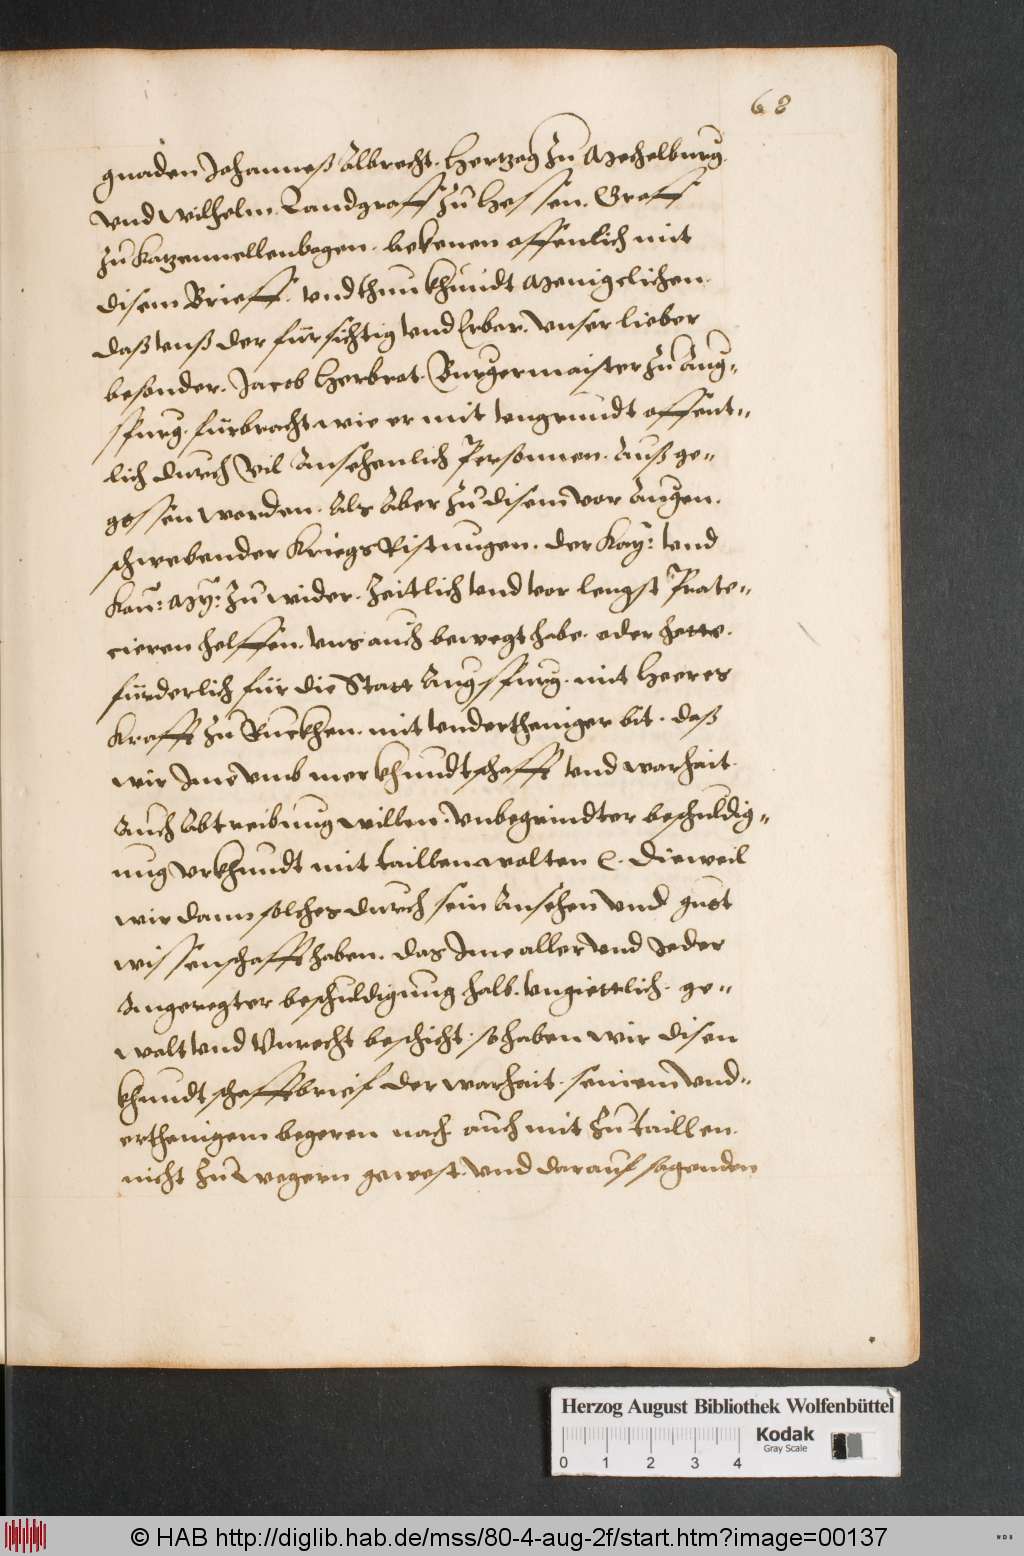 68
gnaden Johanneß Albrecht. Hertzog zu Mechelburg.
vnd Wilhelm. Landgraff zu Hessen. Graff
zu Katzennellenbogen. bekenen offenlich mit
disem Brieff. vnd thun khundt Menigclichen.
daß vnß der fürsichtig vnd Erber. vnser lieber
besonder. Jacob Herbrot. Burgermaister zu Aug=
spurg. fürbracht wie er mit vngrundt offent=
lich durch Vil Ansehenlich Personnen. Auß ge=
gossen worden. Als Aber zu disem vor Augen.
schwebender Kriegs Ristungen. der Kay: vnd
Kün: My: zu wider. zeitlich vnd vor lengst Prate=
cieren helffen. vns auch bewegt habe. oder hette.
fürderlich für die Statt Augspurg. mit Heeres
Krafft zu Ruckhen. mit vndertheniger bit. daß
wir Ime vmb mer khundtschafft vnd warhait.
Auch Abtreibung willen. vnbegrindter beschuldig=
ung vrkhundt mit taillen wolten &. Dieweil
wir dann solches durch sein Ansehen vnd guet
wissenschafft haben. das Ime aller vnd Jeder
Angeregter beschuldigung halb. vngiettlich. ge=
walt vnd Vnrecht beschicht. so haben wir disen
khundtschafftbrief der warhait. seinem vnd=
erthenigem begeren nach auch mit zu taillen.
nicht zu wegern gewest. vnd darauf sagenden
Herzog August Bibliothek Wolfenbüttel
Kodak
Gray Scale
0 1 2 3 4
© HAB http://diglib.hab.de/mss/80-4-aug-2f/start.htm?image=00137